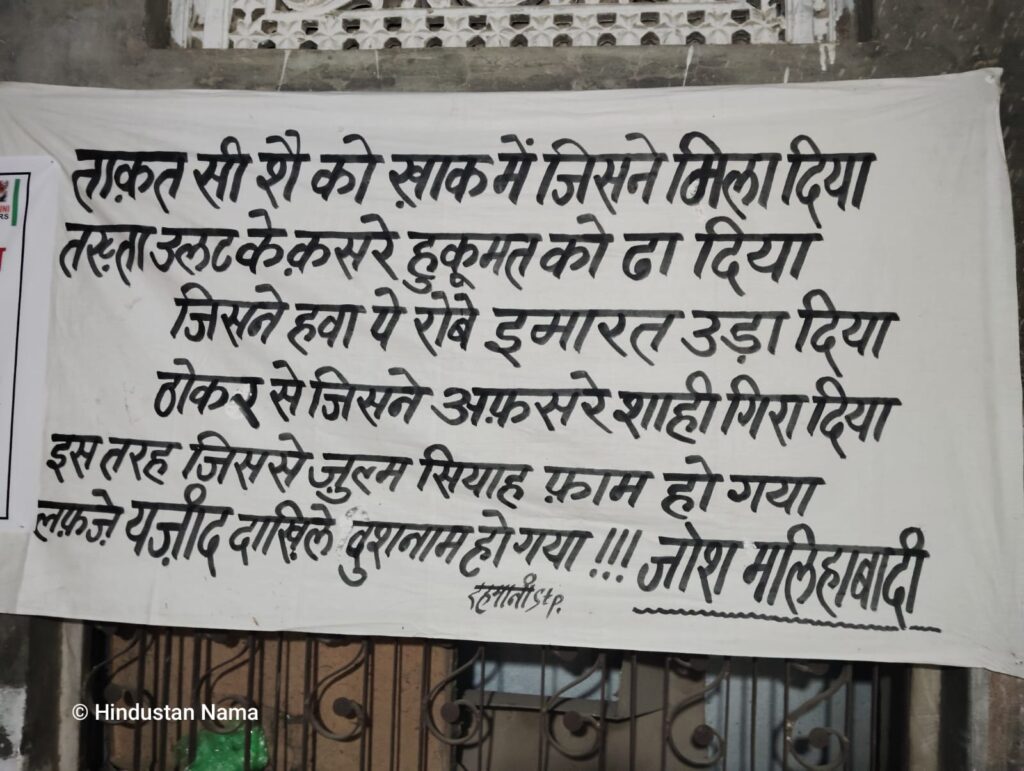 ताक़त सी शै को ख़ाक में जिसने मिला दिया
तख़्ता उलट के क़सरे हुकूमत को ढा दिया
जिसने हवा पे रोबे इमारत उड़ा दिया
ठोकर से जिसने अफ़सरे शाही गिरा दिया
इस तरह जिससे ज़ुल्म सियाह फ़ाम हो गया
लफ़ज़े यज़ीद दाख़िले दुशनाम हो गया !!! जोश मलिहाबादी
रहमानी stp.
© Hindustan Nama